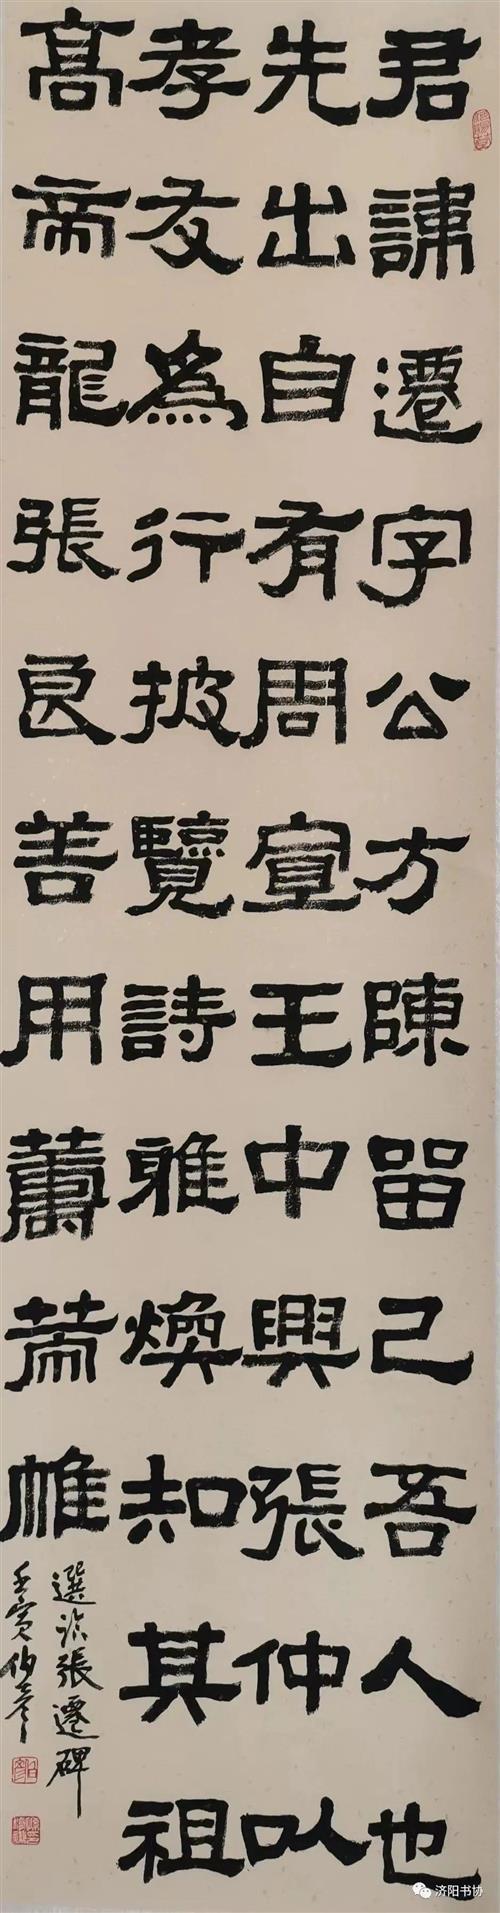 君諱遷字公方陳留己吾人也
先出自有周宣王中興張仲以
孝友為行披覽詩雅煥知其祖
高帝龍張良善用籌帷
選臨張遷碑
壬寅伯彦
济阳书协